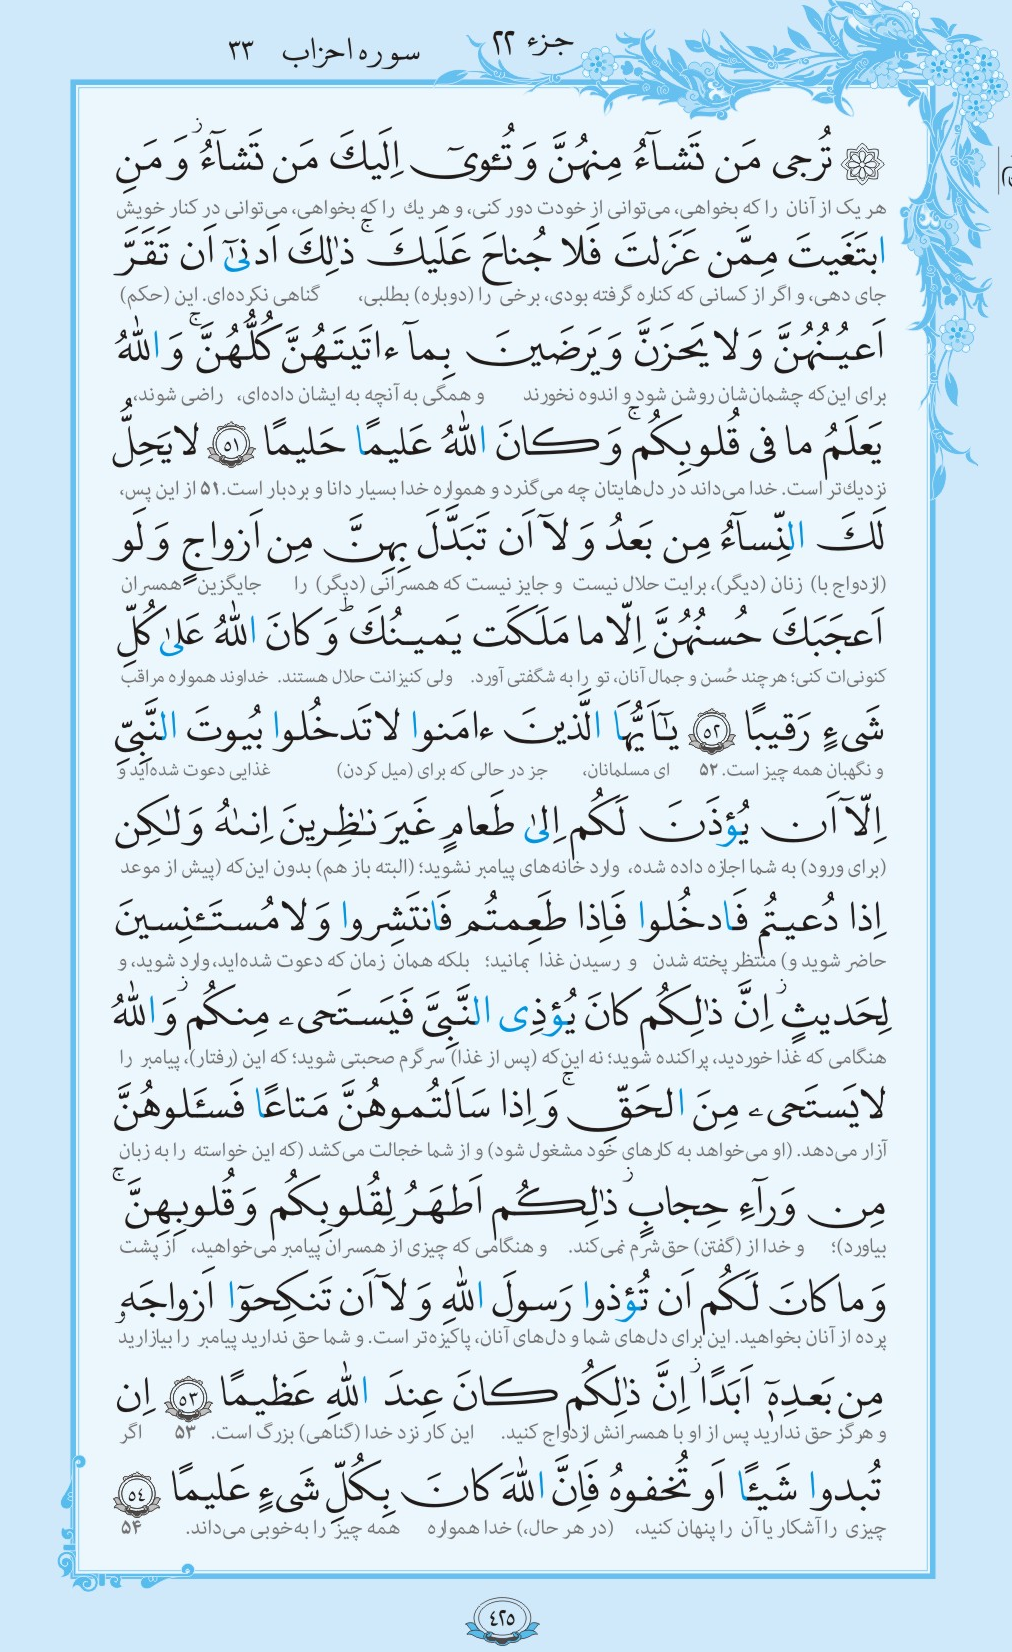 جزء ۲۲
سوره احزاب ۳۳
تُرجی مَن تَشآءُ مِنهُنَّ وَ تُئویٓ اِلَیكَ مَن تَشآءُ ۖ وَ مَنِ
هر یک از آنان را که بخواهی، می‌توانی از خودت دور کنی، و هر یك را که بخواهی، می‌توانی در کنار خویش
ابتَغَیتَ مِمَّن عَزَلتَ فَلا جُناحَ عَلَیكَ ۚ ذٰلِكَ اَدنیٰٓ اَن تَقَرَّ
جای دهی، و اگر از کسانی که کناره گرفته بودی، برخی را (دوباره) بطلبی، گناهی نکرده‌ای. این (حکم)
اَعیُنُهُنَّ وَ لا یَحزَنَّ وَ یَرضَینَ بِمآ ءاتَیتَهُنَّ کُلُّهُنَّ ۚ وَ اللّٰهُ
برای این‌که چشمان‌شان روشن شود و اندوه نخورند و همگی به آنچه به ایشان داده‌ای، راضی شوند،
یَعلَمُ ما فی قُلوبِکُم ۚ وَ کانَ اللّٰهُ عَلیمًا حَلیمًا ٥١ لا یَحِلُّ
نزدیك‌تر است. خدا می‌داند در دل‌هایتان چه می‌گذرد و همواره خدا بسیار دانا و بردبار است. ۵۱ از این پس،
لَكَ النِّسآءُ مِن بَعدُ وَ لآ اَن تَبَدَّلَ بِهِنَّ مِن اَزواجٍ وَ لَو
(ازدواج با) زنان (دیگر)، برایت حلال نیست و جایز نیست که همسرانی (دیگر) را جایگزین همسران
اَعجَبَكَ حُسنُهُنَّ اِلّا ما مَلَکَت یَمینُكَ ۗ وَ کانَ اللّٰهُ عَلیٰ کُلِّ
کنونی‌ات کنی؛ هرچند حُسن و جمال آنان، تو را به شگفتی آورد. ولی کنیزانت حلال هستند. خداوند همواره مراقب
شَیءٍ رَقیبًا ٥٢ یٰٓاَیُّهَا الَّذینَ ءامَنوا لا تَدخُلوا بُیوتَ النَّبِیِّ
و نگهبان همه چیز است. ۵۲ ای مسلمانان، جز در حالی که برای (میل کردن) غذایی دعوت شده‌اید و
اِلّآ اَن یُؤذَنَ لَکُم اِلیٰ طَعامٍ غَیرَ نٰظِرینَ اِنىٰهُ وَ لٰکِن
(برای ورود) به شما اجازه داده شده، وارد خانه‌های پیامبر نشوید؛ (البته باز هم) بدون این‌که (پیش از موعد
اِذا دُعیتُم فَادخُلوا فَاِذا طَعِمتُم فَانتَشِروا وَ لا مُستَئنِسینَ
حاضر شوید و) منتظر پخته شدن و رسیدن غذا بمانید؛ بلکه همان زمان که دعوت شده‌اید، وارد شوید، و
لِحَدیثٍ ۖ اِنَّ ذٰلِکُم کانَ یُؤذِی النَّبِیَّ فَیَستَحیے مِنکُم ۖ وَ اللّٰهُ
هنگامی که غذا خوردید، پراکنده شوید؛ نه این‌که (پس از غذا) سرگرم صحبتی شوید؛ که این (رفتار)، پیامبر را
لا یَستَحیے مِنَ الحَقِّ ۚ وَ اِذا سَاَلتُموهُنَّ مَتاعًا فَسئَلوهُنَّ
آزار می‌دهد. (او می‌خواهد به کارهای خود مشغول شود) و از شما خجالت می‌کشد (که این خواسته را به زبان
مِن وَرآءِ حِجابٍ ۖ ذٰلِکُم اَطهَرُ لِقُلوبِکُم وَ قُلوبِهِنَّ ۚ
بیاورد)؛ و خدا از (گفتن) حق شرم نمی‌کند. و هنگامی که چیزی از همسران پیامبر می‌خواهید، از پشت
وَ ما کانَ لَکُم اَن تُؤذوا رَسولَ اللّٰهِ وَ لآ اَن تَنکِحوٓا اَزواجَهو
پرده از آنان بخواهید. این برای دل‌های شما و دل‌های آنان، پاکیزه‌تر است. و شما حق ندارید پیامبر را بیازارید
مِن بَعدِهٖٓ اَبَدًا ۖ اِنَّ ذٰلِکُم کانَ عِندَ اللّٰهِ عَظیمًا ٥٣ اِن
و هرگز حق ندارید پس از او با همسرانش ازدواج کنید. این کار نزد خدا (گناهی) بزرگ است. ۵۳ اگر
تُبدوا شَیئًا اَو تُخفوهُ فَاِنَّ اللّٰهَ کانَ بِکُلِّ شَیءٍ عَلیمًا ٥٤
چیزی را آشکار یا آن را پنهان کنید، (در هر حال،) خدا همواره همه چیز را به‌خوبی می‌داند. ۵۴
٤٢٥